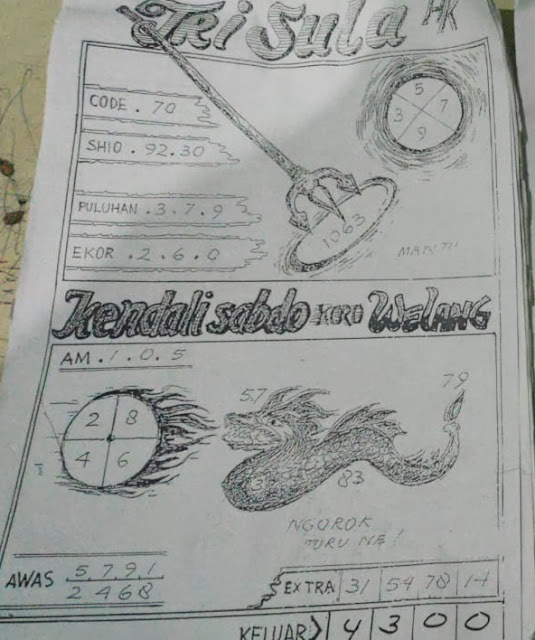 Tri Sula HK
CODE . 70
SHIO . 92.30
PULUHAN . 3 . 7 . 9
EKOR . 2 . 6 . 0
5
3 7
9
1063
Kendali sabdo KORO WELANG
AM . 1 . 0 . 5
2 8
4 6
57
79
83
NGOROK
TURU NE !
AWAS 5 7 9 1
2 4 6 8
EXTRA 31 54 78 14
KELUAR > 4 3 0 0